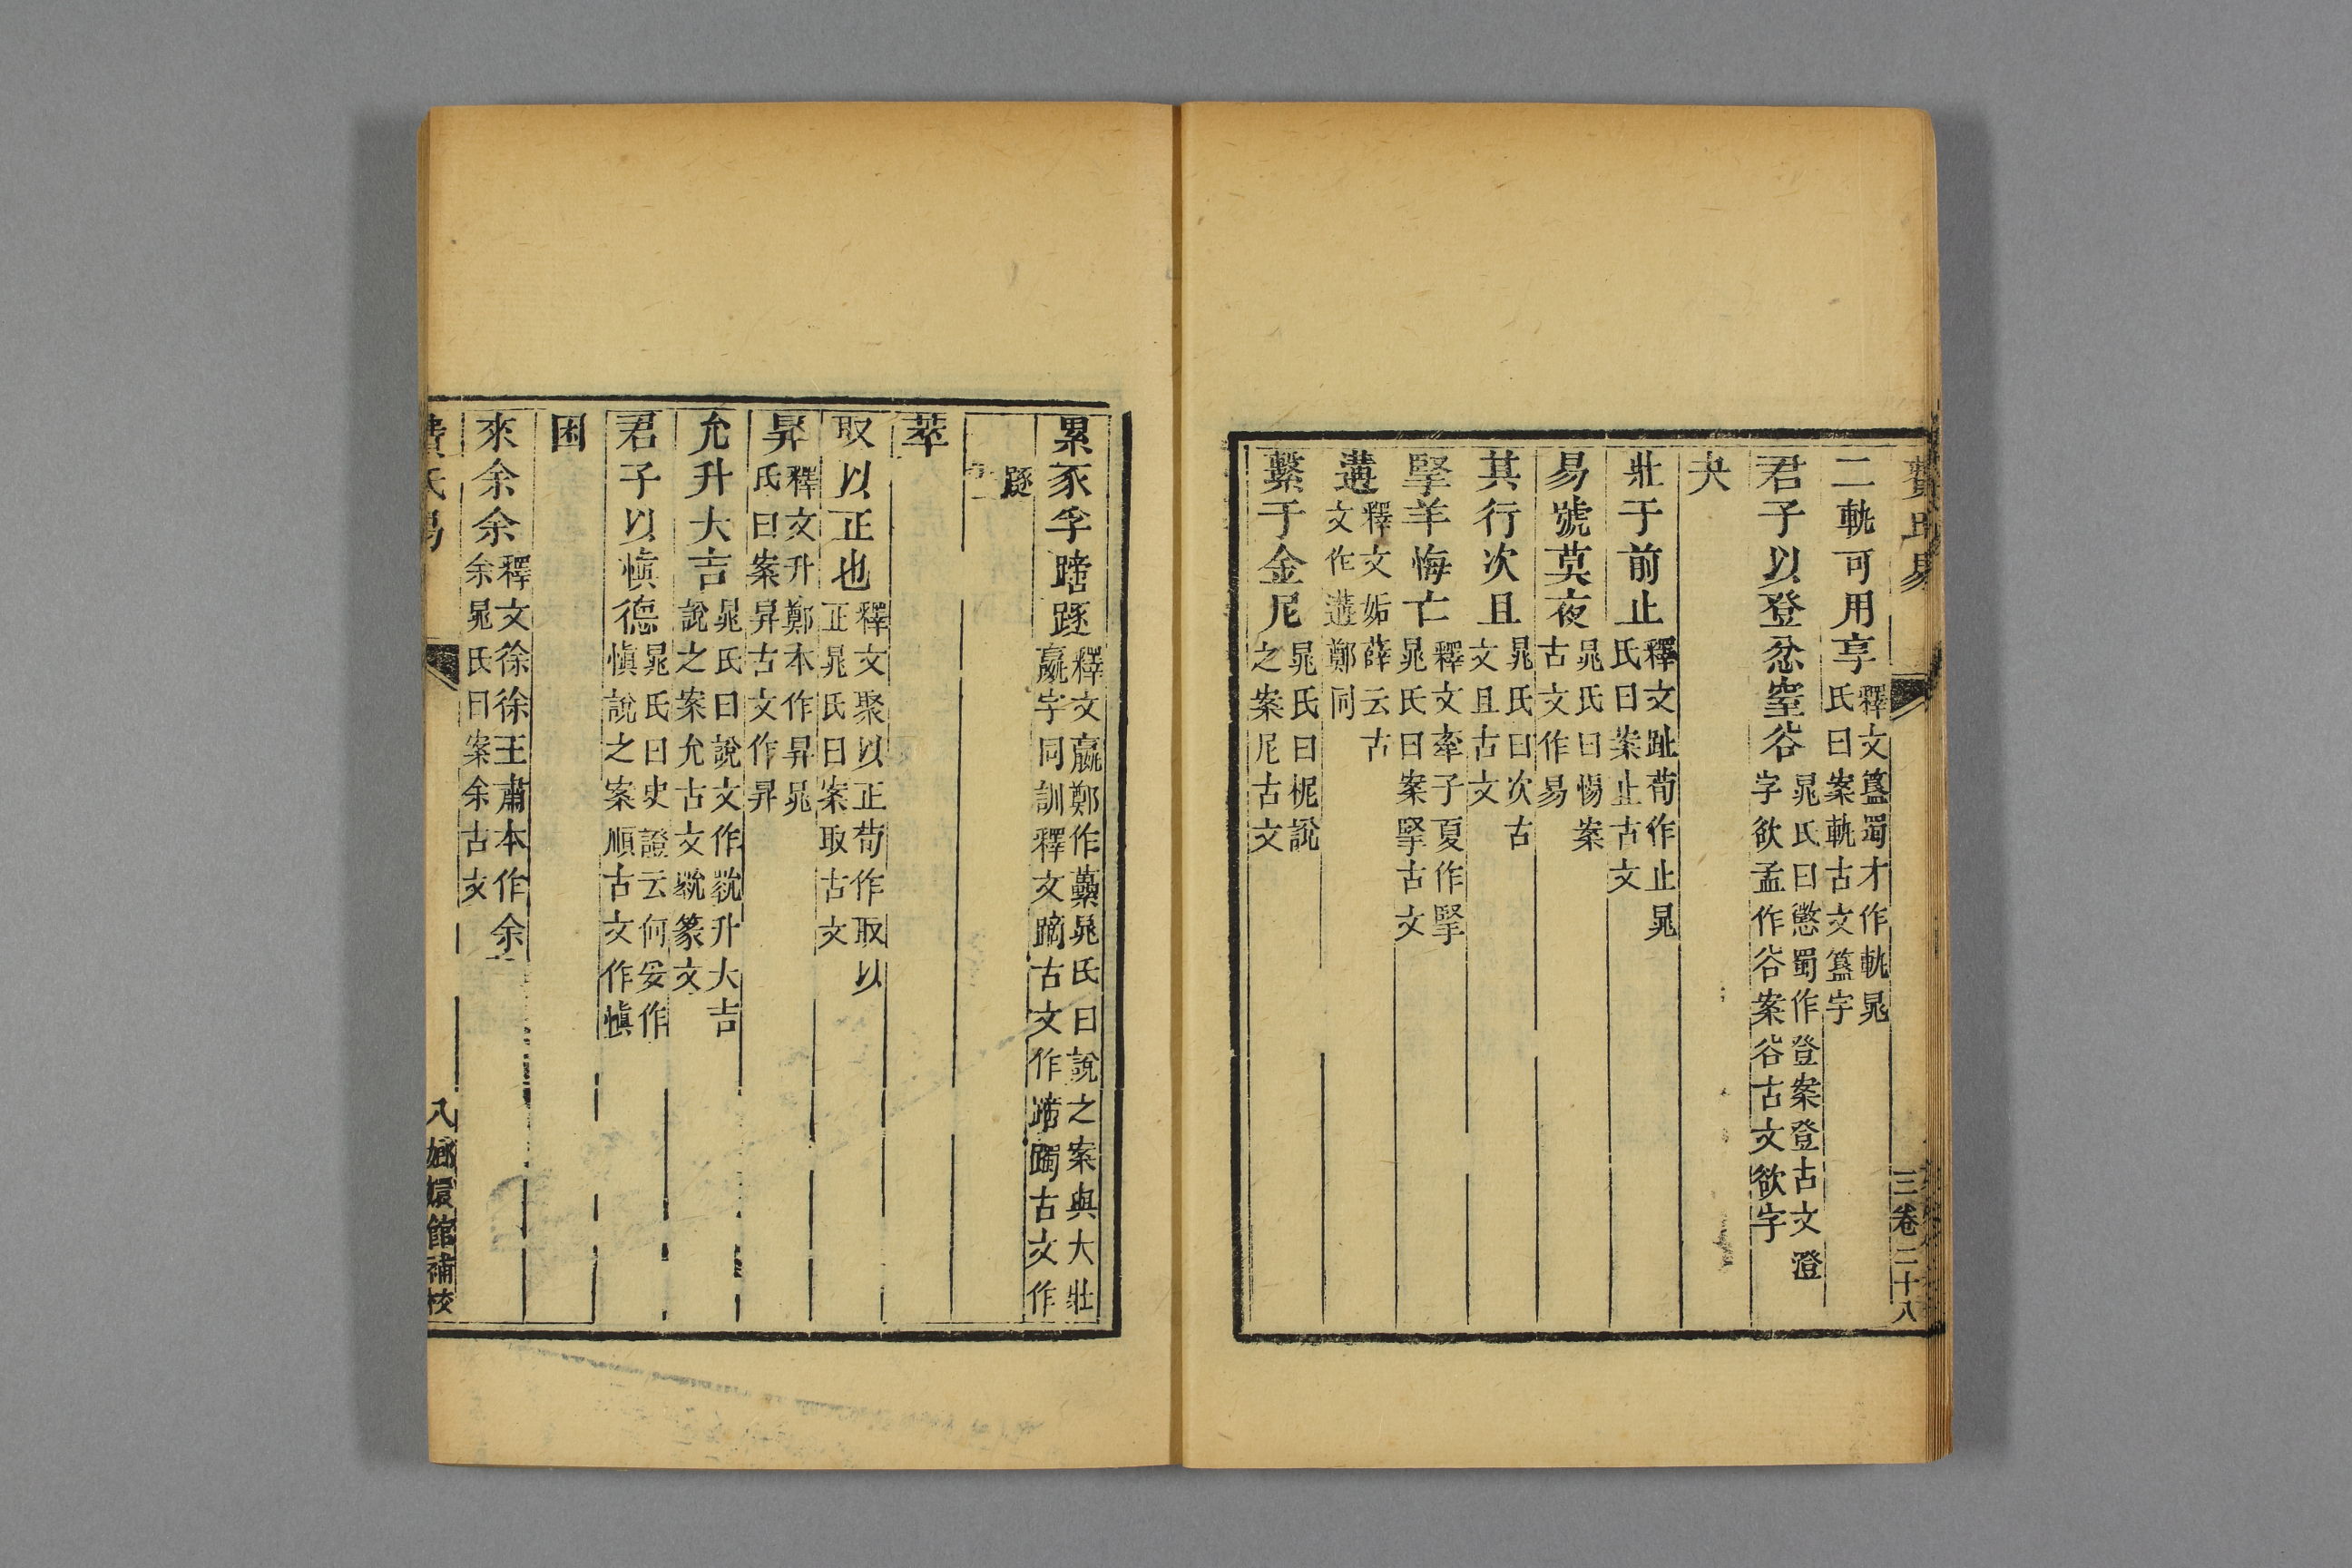 費氏易
三卷二十八
二軌可用享釋文簋蜀才作軌晁氏曰案軌古文簋字
君子以登忿窒谷晁氏曰懲蜀作登案登古文澄字欲孟作谷案谷古文欲字
夬
壯于前止釋文趾荀作止晁氏曰案止古文
易號莫夜晁氏曰惕案古文作易
其行次且晁氏曰次古文且古文
掔羊悔亡釋文牽子夏作掔晁氏曰案掔古文
遘釋文姤薛云古文作遘鄭同
繫于金尼晁氏曰柅說之案尼古文
累豕孚蹢逐釋文羸鄭作虆晁氏曰說之案與大壯羸字同訓釋文蹢古文作蹄躅古文作
𨂔
萃
取以正也釋文聚以正荀作取以正晁氏曰案取古文
昇釋文升鄭本作昇晁氏曰案昇古文作昇
允升大吉晁氏曰說文作㽙升大吉說之案允古文㽙篆文
君子以慎德晁氏曰史證云何妥作慎說之案順古文作慎
困
來余余釋文徐徐王肅本作余余晁氏曰案余古文
費氏易
八嫏嬛館補校